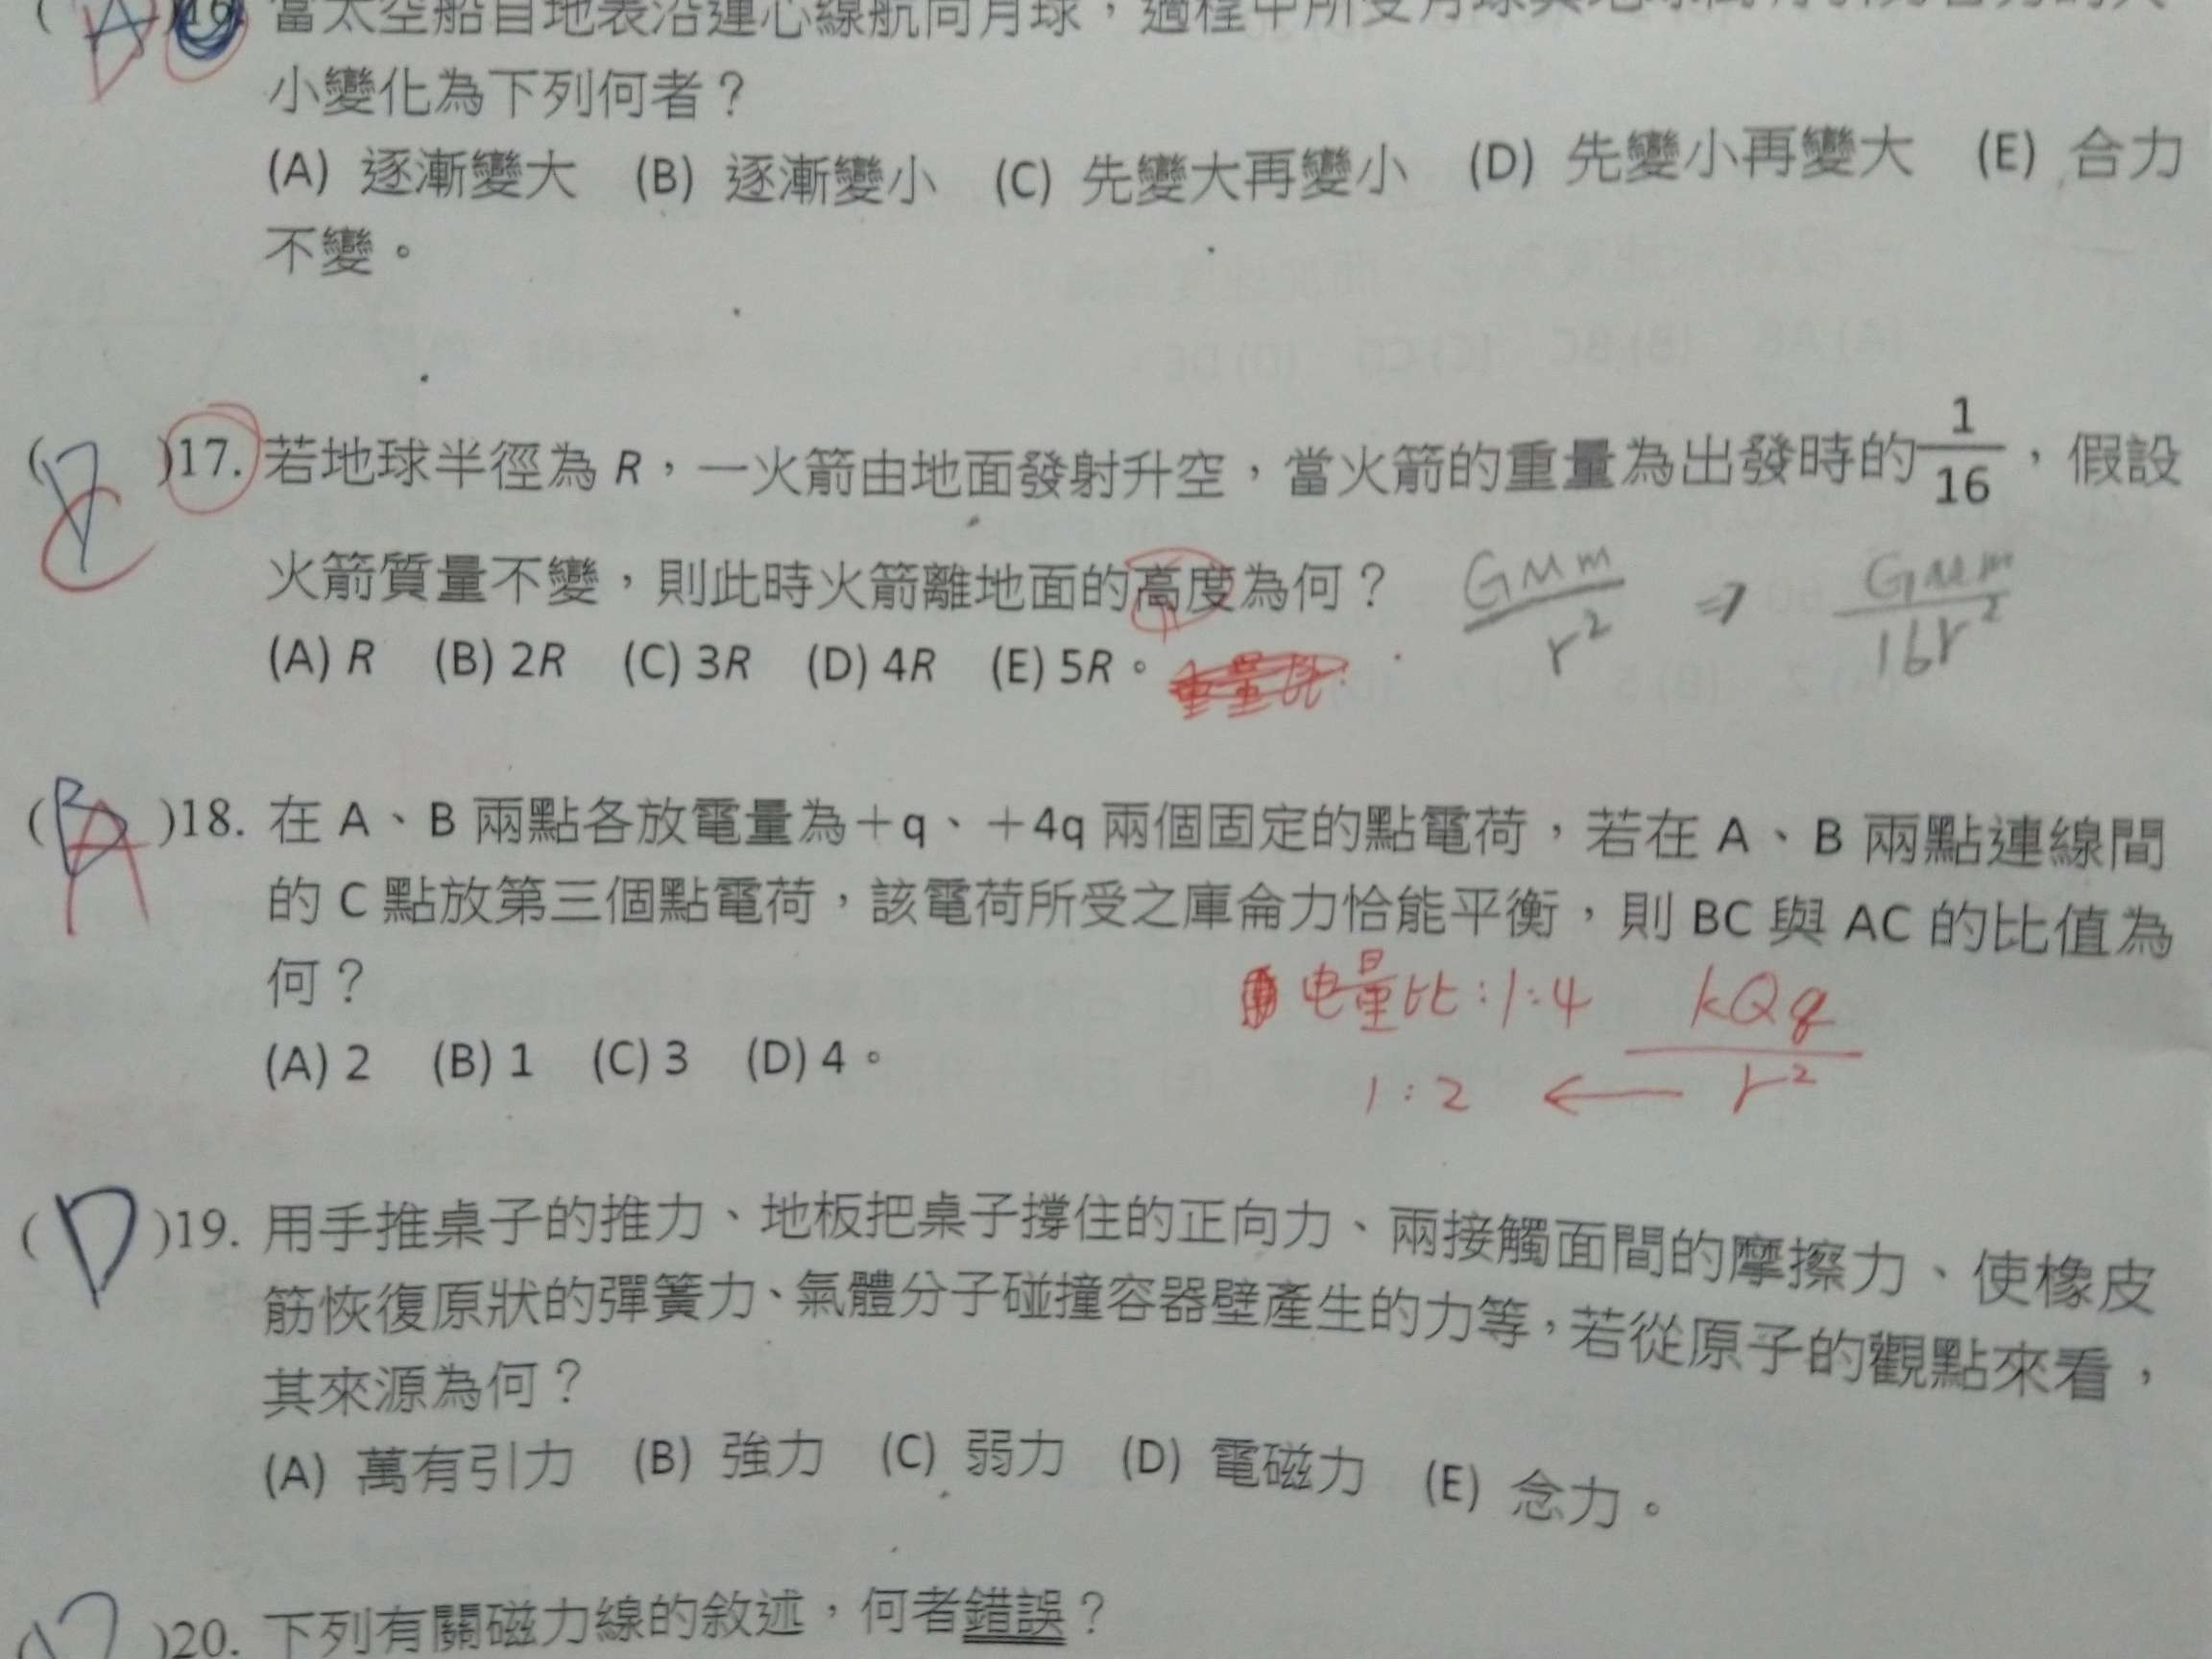 16. 當太空船自地表沿連心線航向月球，過程中所受月球與地球
小變化為下列何者？
(A) 逐漸變大 (B) 逐漸變小 (C) 先變大再變小 (D) 先變小再變大 (E) 合力
不變。
( C )17. 若地球半徑為 R，一火箭由地面發射升空，當火箭的重量為出發時的 1/16，假設
火箭質量不變，則此時火箭離地面的高度為何？ GMm/r² ⇒ GMm/16r²
(A) R (B) 2R (C) 3R (D) 4R (E) 5R。
( B A )18. 在 A、B 兩點各放電量為＋q、＋4q 兩個固定的點電荷，若在 A、B 兩點連線間
的 C 點放第三個點電荷，該電荷所受之庫侖力恰能平衡，則 BC 與 AC 的比值為
何？
电量比:1:4 kQq/r²
(A) 2 (B) 1 (C) 3 (D) 4。
1:2 ←
( D )19. 用手推桌子的推力、地板把桌子撐住的正向力、兩接觸面間的摩擦力、使橡皮
筋恢復原狀的彈簧力、氣體分子碰撞容器壁產生的力等，若從原子的觀點來看，
其來源為何？
(A) 萬有引力 (B) 強力 (C) 弱力 (D) 電磁力 (E) 念力。
)20. 下列有關磁力線的敘述，何者錯誤？